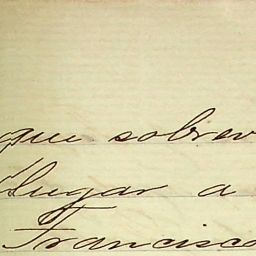 que sobrev
lugar a
Francisco